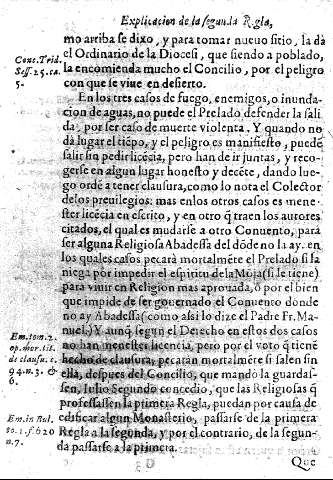 Explicacion de la segunda Regla,
mo arriba se dixo, y para tomar nueuo sitio, la dà
el Ordinario de la Diocesi, que siendo a poblado,
la encomienda mucho el Concilio, por el peligro
con que se viue en desierto.
Conc. Trid.
Sess. 25. ca.
5.
En los tres casos de fuego, enemigos, o inunda-
cion de aguas, no puede el Prelado defender la sali
da, por ser caso de muerte violenta. Y quando no
dà lugar el tiẽpo, y el peligro es manifiesto, puedẽ
salir sin pedir licẽcia, pero han de ir juntas, y reco-
gerse en algun lugar honesto y decẽte, dando lue-
go ordẽ a tener clausura, como lo nota el Colector
de los preuilegios: mas en los otros casos es mene-
ster licẽcia en escrito, y en otro q̃ traen los autores
citados, el qual es mudarse a otro Conuento, para
ser alguna Religiosa Abadessa del dõde no la ay. en
los quales casos pecarà mortalmẽte el Prelado si la
niega por impedir el espiritu de la Mõja (si le tiene)
para viuir en Religion mas aprouada, ò por el bien
que impide de ser gouernado el Conuento donde
no ay Abadessa (como assi lo dize el Padre Fr. Ma-
nuel.) Y aunq̃ segun el Derecho en estos dos casos
no han menester licencia, pero por el voto q̃ tienẽ
hecho de clausura, pecaràn mortalmẽte si salen sin
ella, despues del Concilio, que mandò la guardas-
sen, Iulio Segundo concediò, que las Religiosas q̃
professassen la primera Regla, puedan por causa de
edificar algun Monasterio, passarse de la primera
Regla a la segunda, y por el contrario, de la segun-
da passarse a la primera.
Em. tom. 2.
op. mor. tit.
de clausu. c.
94. n. 3. &
6.
Em. in Bul.
so. 1. f. 620
n. 7.
Que